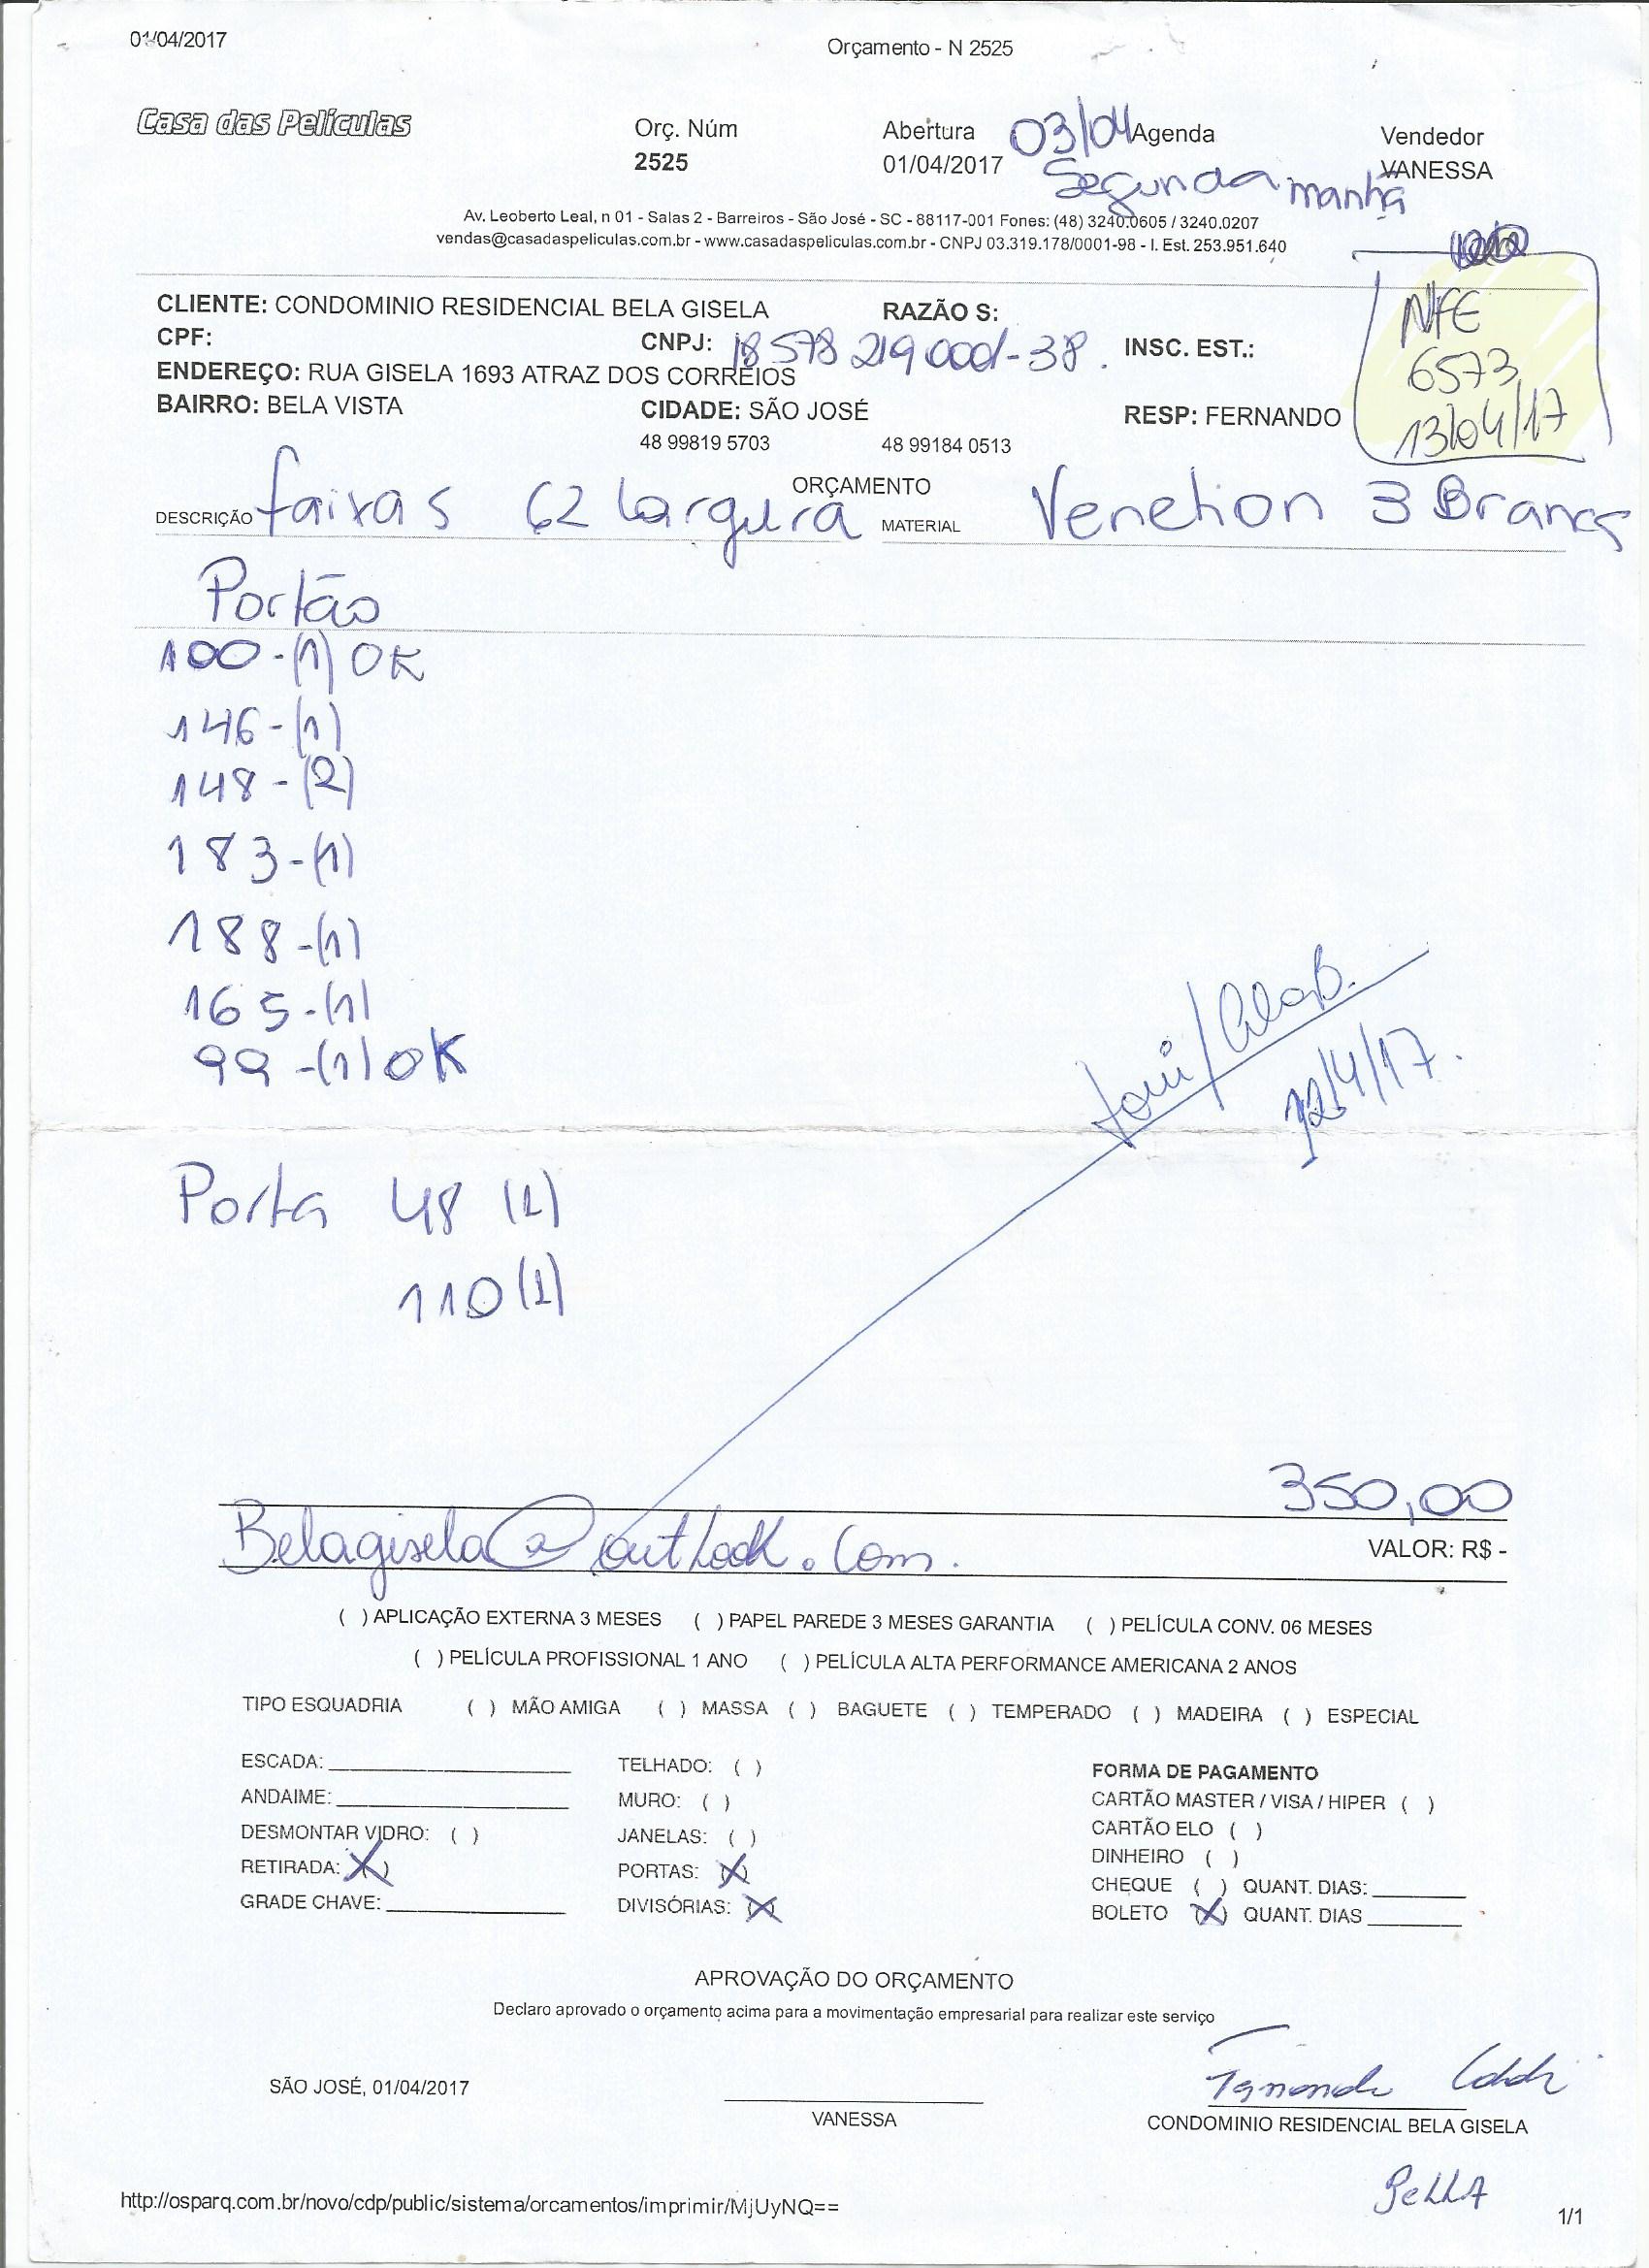 01/04/2017
Orçamento - N 2525
Casa das Películas
Orç. Núm
2525
Abertura
01/04/2017
03/04
Agenda
Segunda manhã
Vendedor
VANESSA
Av. Leoberto Leal, n 01 - Salas 2 - Barreiros - São José - SC - 88117-001 Fones: (48) 3240.0605 / 3240.0207
vendas@casadaspeliculas.com.br - www.casadaspeliculas.com.br - CNPJ 03.319.178/0001-98 - I. Est. 253.951.640
NFE
6573
13/04/17
CLIENTE: CONDOMINIO RESIDENCIAL BELA GISELA RAZÃO S:
CPF: CNPJ: 18 578 219 0001-38. INSC. EST.:
ENDEREÇO: RUA GISELA 1693 ATRAZ DOS CORREIOS
BAIRRO: BELA VISTA CIDADE: SÃO JOSÉ RESP: FERNANDO
48 99819 5703 48 99184 0513
ORÇAMENTO
DESCRIÇÃO faixas 62 largura MATERIAL Venetion 3 Branca
Portão
100-(1) OK
146-(1)
148-(2)
183-(1)
188-(1)
165-(1)
99-(1) OK
12/4/17.
Porta 48 (1)
110 (1)
350,00
Belagisela@outlook.com.
VALOR: R$ -
( ) APLICAÇÃO EXTERNA 3 MESES ( ) PAPEL PAREDE 3 MESES GARANTIA ( ) PELÍCULA CONV. 06 MESES
( ) PELÍCULA PROFISSIONAL 1 ANO ( ) PELÍCULA ALTA PERFORMANCE AMERICANA 2 ANOS
TIPO ESQUADRIA ( ) MÃO AMIGA ( ) MASSA ( ) BAGUETE ( ) TEMPERADO ( ) MADEIRA ( ) ESPECIAL
ESCADA: TELHADO: ( ) FORMA DE PAGAMENTO
ANDAIME: MURO: ( ) CARTÃO MASTER / VISA / HIPER ( )
DESMONTAR VIDRO: ( ) JANELAS: ( ) CARTÃO ELO ( )
DINHEIRO ( )
RETIRADA: (X) PORTAS: (X) CHEQUE ( ) QUANT. DIAS:
GRADE CHAVE: DIVISÓRIAS: (X) BOLETO (X) QUANT. DIAS
APROVAÇÃO DO ORÇAMENTO
Declaro aprovado o orçamento acima para a movimentação empresarial para realizar este serviço
SÃO JOSÉ, 01/04/2017
VANESSA
CONDOMINIO RESIDENCIAL BELA GISELA
http://osparq.com.br/novo/cdp/public/sistema/orcamentos/imprimir/MjUyNQ==
1/1